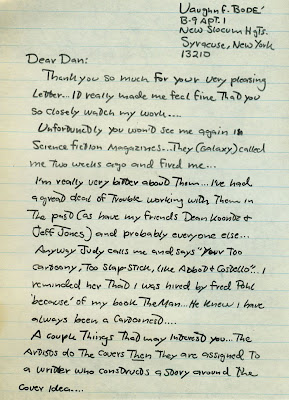 Vaughn F. BODE'
B-9 APT. 1
New Slocum Hgts.
Syracuse, New York
13210
Dear Dan:
Thank you so much for your very pleasing
Letter... It really made me feel fine that you
so closely watch my work....
Unfortunatly you won't see me again in
Science fiction Magazines... They (Galaxy) called
me two weeks ago and fired me...
I'm really very bitter about them... I've had
a great deal of trouble working with them in
the past (as have my friends Dean Koontz &
Jeff Jones) and probably everyone else...
Anyway Judy calls me and says "Your Too
cartoony, Too Slap-stick, like Abbot & Costello".. I
reminded her that I was hired by Fred Pohl
'because' of my book The Man... He knew I have
always been a Cartoonist....
A couple Things that may interest you... The
Artists do the covers Then They are assigned to
a writer who constructs a story around the
cover idea....